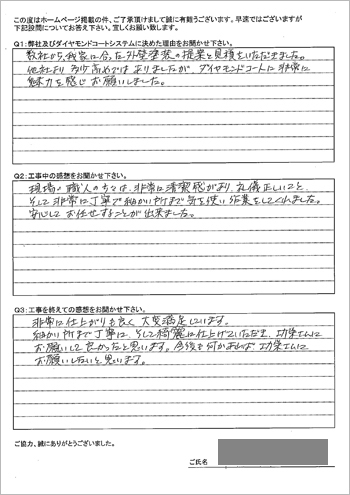 この度はホームページ掲載の件、ご了承頂けまして誠に有難うございます。早速ではございますが
下記設問についてお答え下さい。宜しくお願い致します。
Q1:弊社及びダイヤモンドコートシステムに決めた理由をお聞かせ下さい。
数社から、我家に合った外壁塗装の提案と見積をいただきました。
他社より多少高めではありましたが、ダイヤモンドコートに非常に
魅力を感じお願いしました。
Q2:工事中の感想をお聞かせ下さい。
現場の職人の方々は、非常に清潔感があり、礼儀正しいこと、
そして非常に丁寧で細かい所まで気を使い作業をしてくれました。
安心してお任せすることが出来ました。
Q3:工事を終えての感想をお聞かせ下さい。
非常に仕上がりも良く、大変満足しています。
細かい所まで丁寧に、そして綺麗に仕上げていただき、功栄さんに
お願いして良かったと思います。今後も何かあれば、功栄さんに
お願いしたいと思います。
ご協力、誠にありがとうございました。
ご氏名